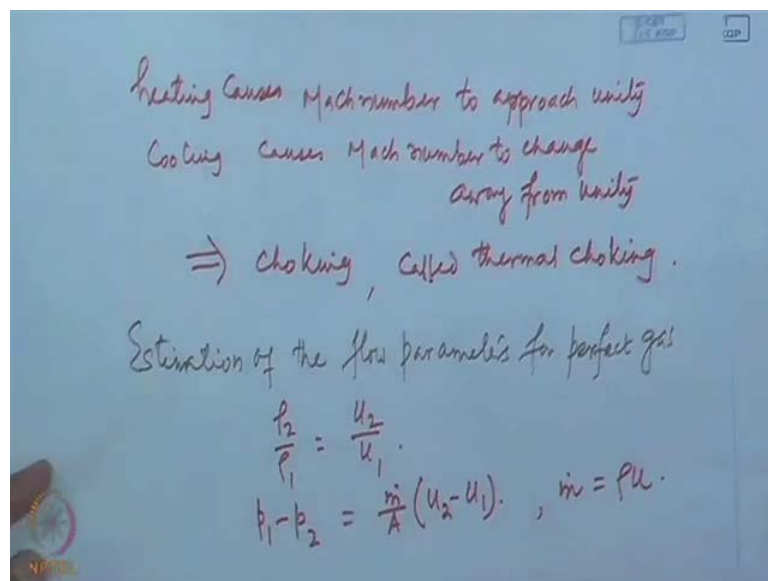 heating causes Mach number to approach unity
Cooling causes Mach number to change
away from unity
⇒ choking, called thermal choking.
Estimation of the flow parameters for perfect gas
ρ₂/ρ₁ = u₂/u₁.
p₁-p₂ = ṁ/A (u₂-u₁). , ṁ = ρu.
NPTEL